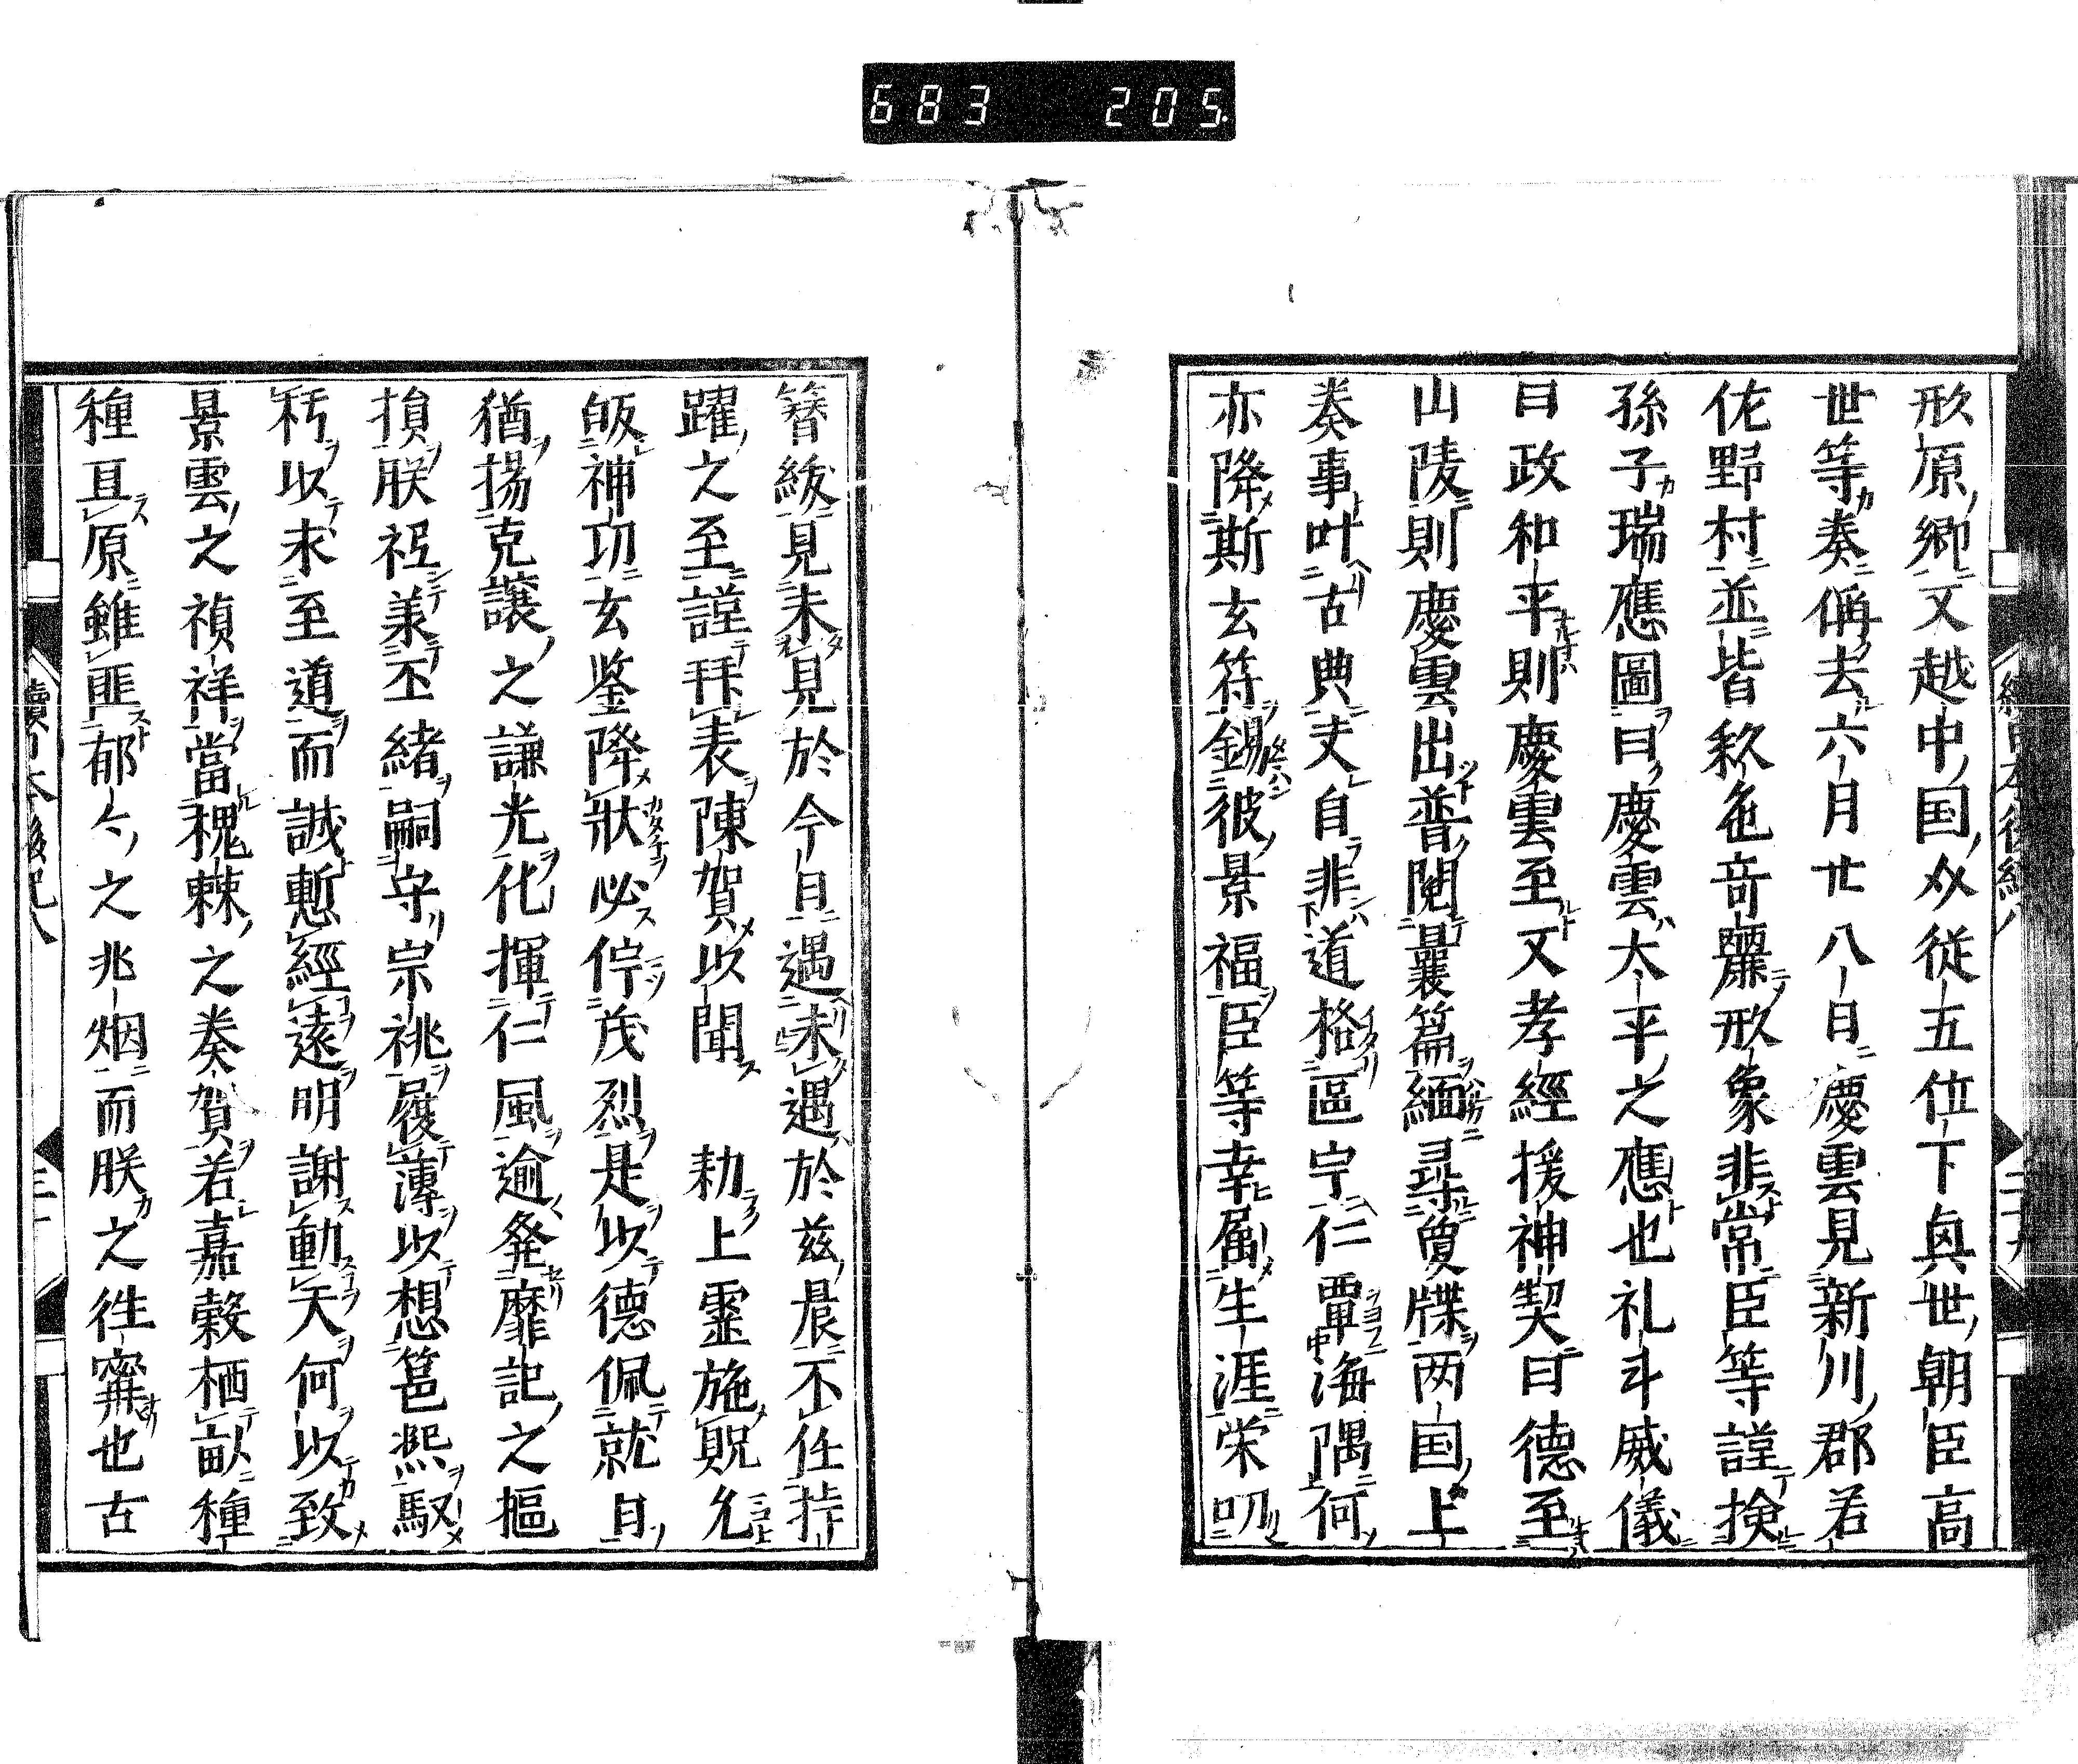 683 205
形原郷又越中国介従五位下輿世朝臣高
世等奏偁去六月廿八日慶雲見新川郡若
佐野村並皆煞色奇麗形象非常臣等謹検
孫子瑞應圖曰慶雲太平之應也礼斗威儀
曰政和平則慶雲至又孝經援神契曰德至
山陵則慶雲出普閲曩篇緬尋夐牒两国上
奏事叶古典丈自非道格區宇仁覃海隅何
亦降斯玄符錫彼景福臣等幸属生涯栄叨
簪紱見未見於今日遇未遇於兹晨不任抃
躍之至謹拜表陳賀以聞 勑上靈施貺允
皈神功玄鉴降狀必佇茂烈是以德佩就日
猶揚克讓之謙光化揮仁風逾発靡記之摳
損朕祗羕丕緒嗣守宗祧履薄以想邕熙馭
朽以求至道而誠慙經遠明謝動天何以致
景雲之禎祥當槐棘之奏賀若嘉穀栖畝種
種亘原雖匪郁々之兆烟而朕之徃寗也古
續日本後紀八
三十
二十九